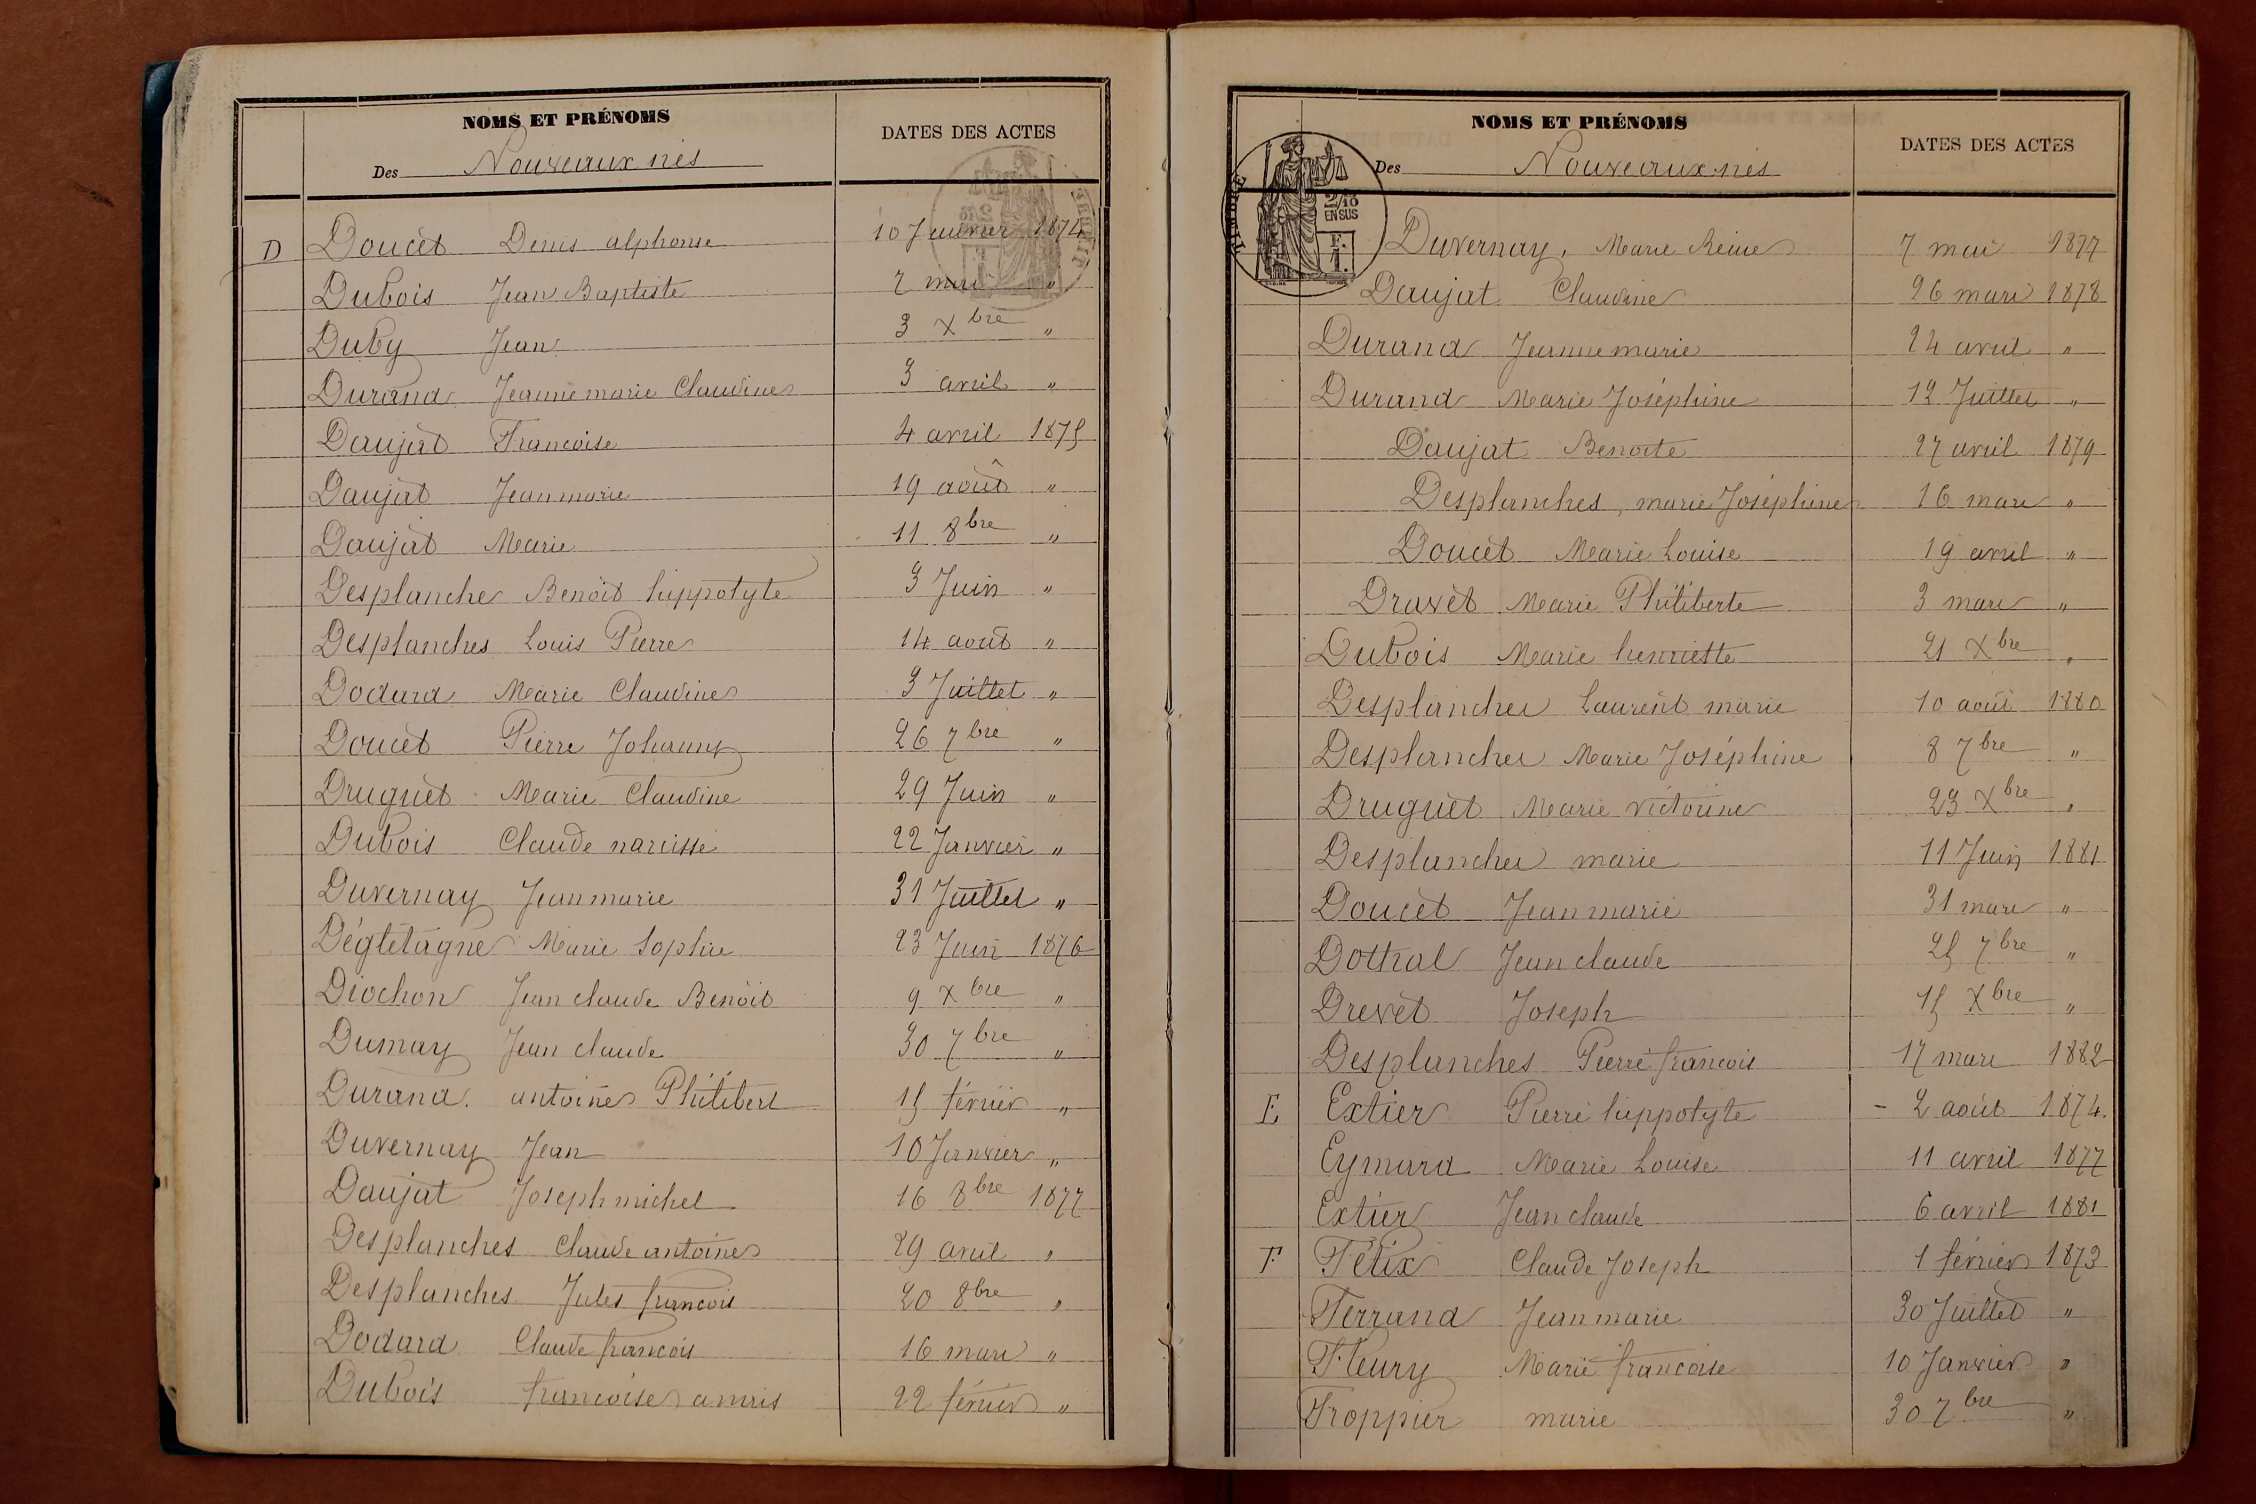 NOMS ET PRÉNOMS
DATES DES ACTES
Des Nouveaux nés
D Doucèt Denis alphonse 10 Janvier 1874
Dubois Jean Baptiste 2 mai "
Duby Jean 3 Xbre "
Durand Jeanne marie Claudine 3 avril "
Daujat Francoise 4 avril 1875
Daujat Jean marie 19 août "
Daujat Marie 11 8bre "
Desplanche Benoit hippolyte 3 Juin "
Desplanches Louis Pierre 14 août "
Dodard Marie Claudine 3 Juillet "
Doucèt Pierre Johanny 26 7bre "
Druguèt Marie Claudine 29 Juin "
Dubois Claude narcisse 22 Janvier "
Duvernay Jean marie 31 Juillet "
Dégletagne Marie Sophie 23 Juin 1876
Diochon Jean claude Benoit 9 Xbre "
Dumay Jean claude 30 7bre "
Durand antoine Philibert 15 février "
Duvernay Jean 10 Janvier "
Daujat Joseph michel 16 8bre 1877
Desplanches Claude antoine 29 avril "
Desplanches Jules francois 20 8bre "
Dodard Claude francois 16 mars "
Dubois francoise 22 février "
NOMS ET PRÉNOMS
DATES DES ACTES
Des Nouveaux nés
TIMBRE
2/10
EN SUS
F.
1.
Duvernay, Marie Reine 7 mai 1877
Daujat Claudine 26 mars 1878
Durand Jeanne marie 24 avril "
Durand Marie Joséphine 12 Juillet "
Daujat Benoite 27 avril 1879
Desplanches, marie Joséphine 16 mars "
Doucèt Marie Louise 19 avril "
Dravèt Marie Philiberte 3 mars "
Dubois Marie henriette 21 Xbre "
Desplanches Laurent marie 10 août 1880
Desplanches Marie Joséphine 8 7bre "
Druguèt Marie victorine 23 Xbre "
Desplanches marie 11 Juin 1881
Doucèt Jean marie 31 mars "
Dothal Jean claude 25 7bre "
Drevèt Joseph 15 Xbre "
Desplanches Pierre francois 17 mars 1882
E Extier Pierre hippolyte - 2 août 1874.
Eymard Marie Louise 11 avril 1877
Extier Jean claude 6 avril 1881
F Félix Claude Joseph 1 février 1873
Ferrand Jean marie 30 Juillet "
Fleury Marie francoise 10 Janvier "
Froppier marie 30 7bre "